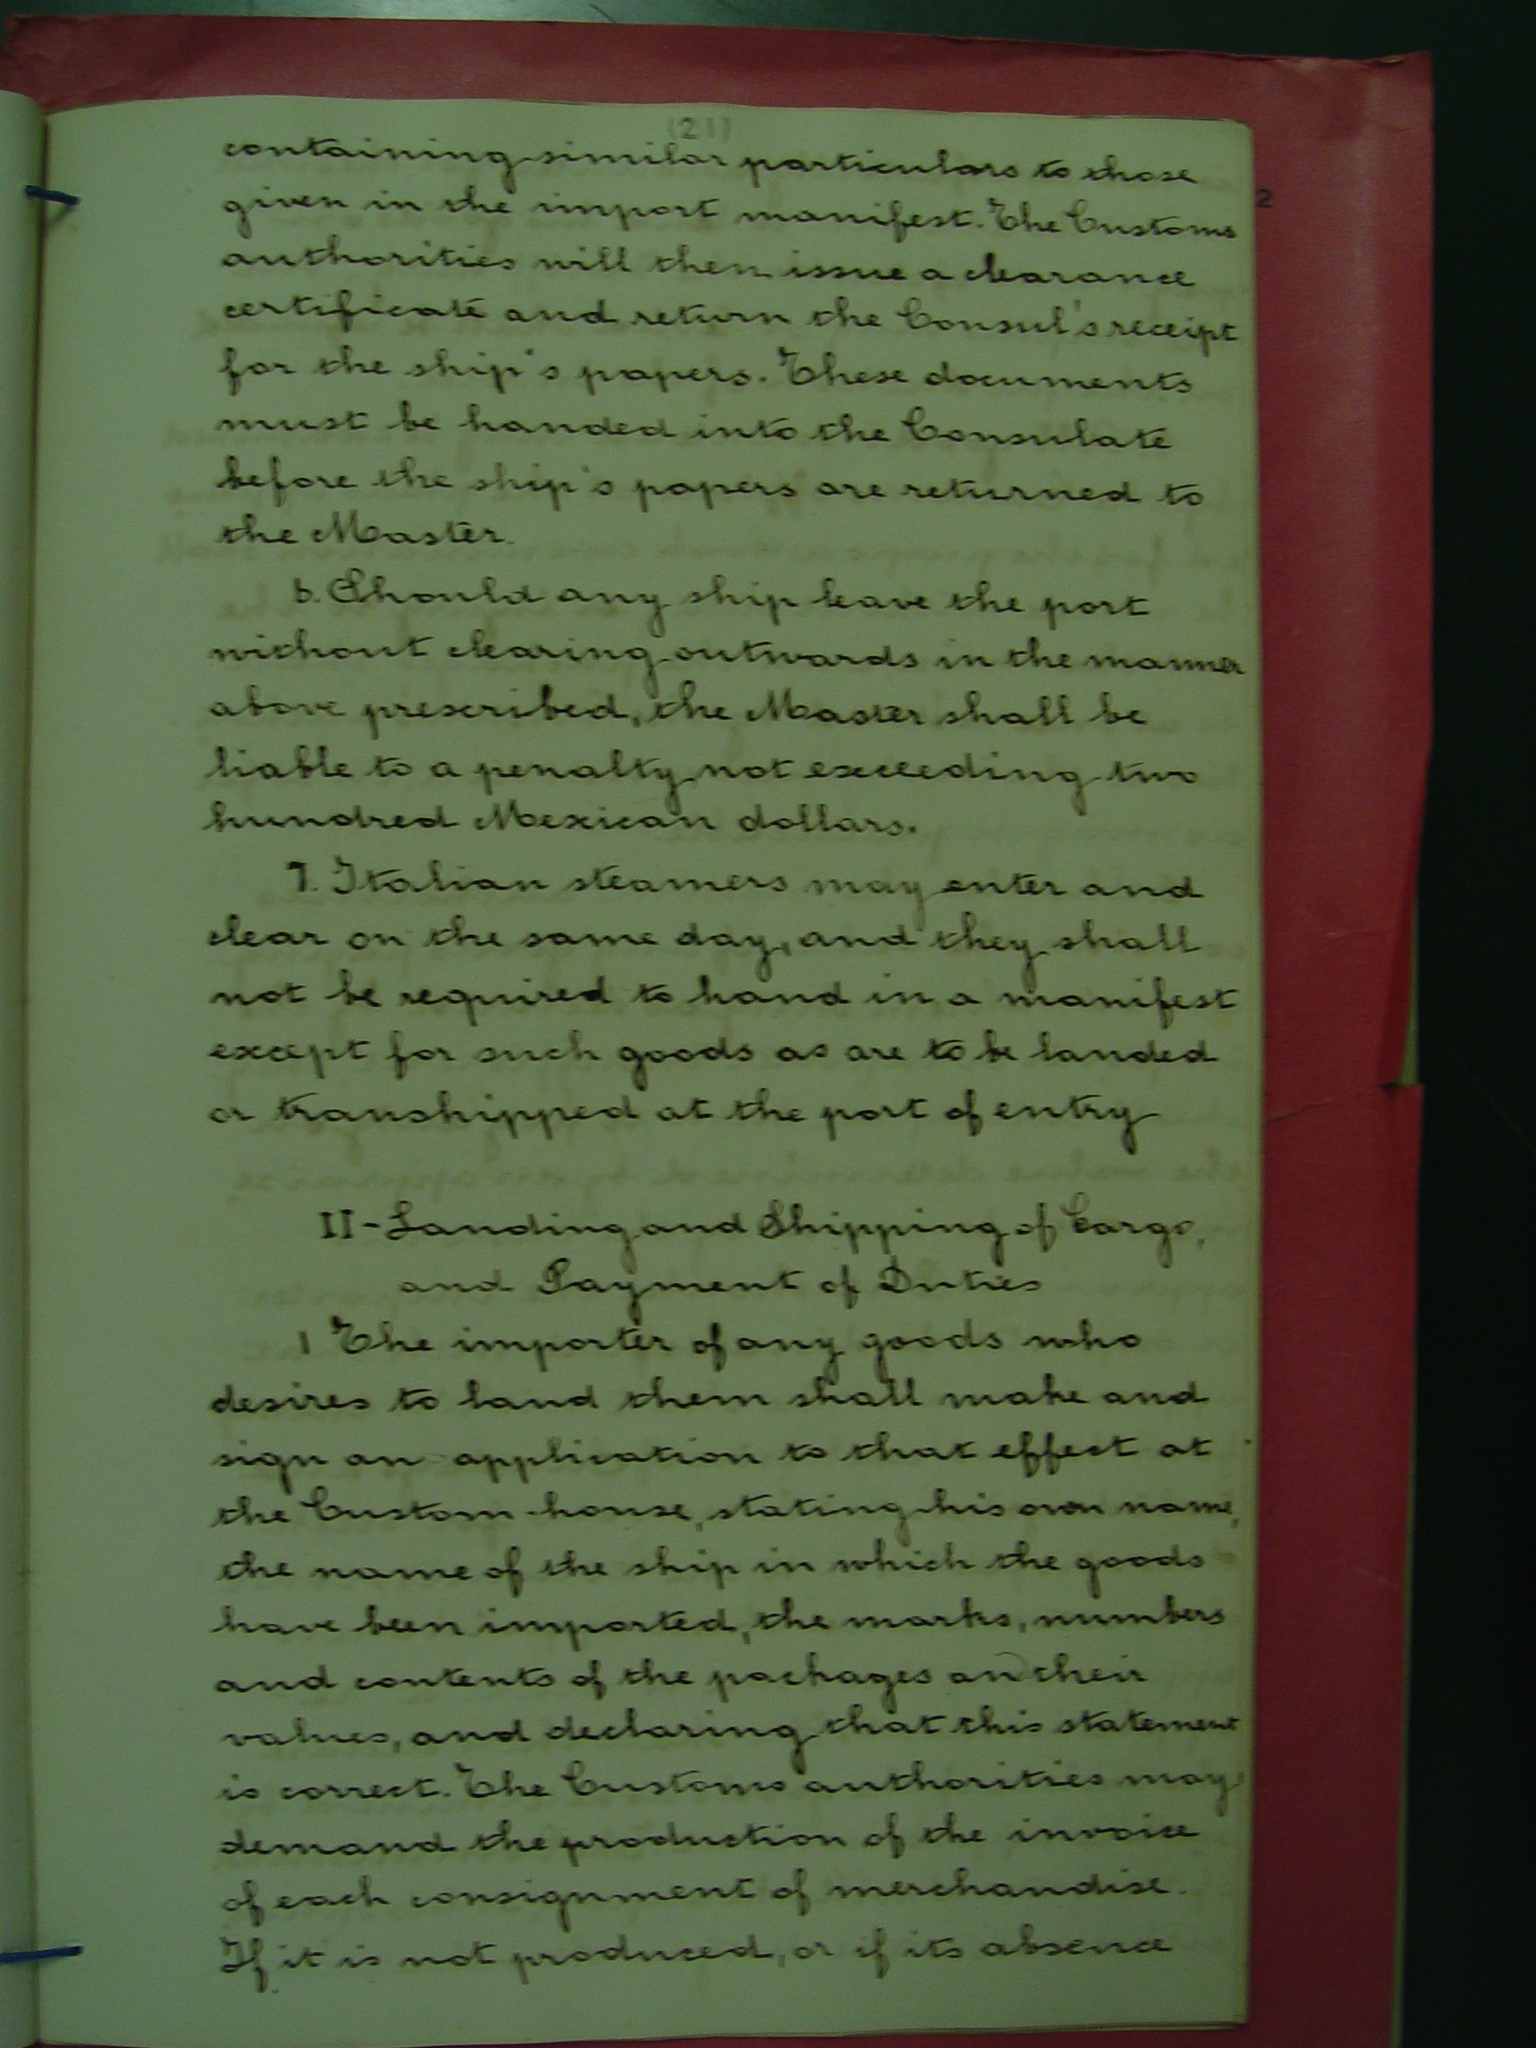 (21)
containing similar particulars to those
given in the import manifest. The Customs
authorities will then issue a clearance
certificate and return the Consul's receipt
for the ship's papers. These documents
must be handed into the Consulate
before the ship's papers are returned to
the Master.
6. Should any ship leave the port
without clearing outwards in the manner
above prescribed, the Master shall be
liable to a penalty not exceeding two
hundred Mexican dollars.
7. Italian steamers may enter and
clear on the same day, and they shall
not be required to hand in a manifest
except for such goods as are to be landed
or transhipped at the port of entry
II - Landing and Shipping of Cargo,
and Payment of Duties
1 The importer of any goods who
desires to land them shall make and
sign an application to that effect at
the Custom-house, stating his own name,
the name of the ship in which the goods
have been imported, the marks, numbers
and contents of the packages an their
values, and declaring that this statement
is correct. The Customs authorities may
demand the production of the invoice
of each consignment of merchandise.
If it is not produced, or if its absence
2